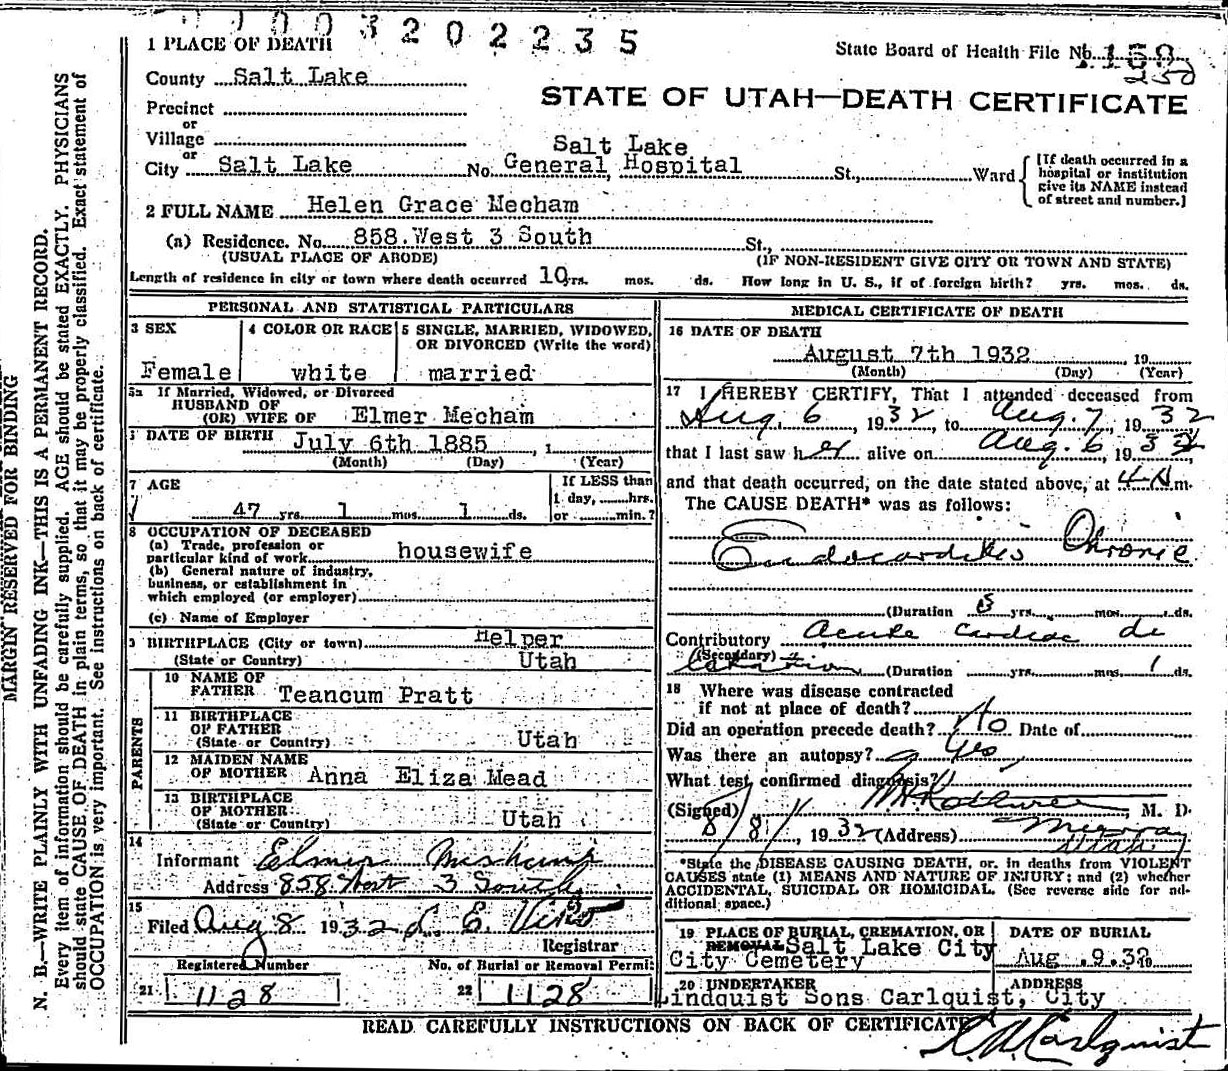 0 0 3 2 0 2 2 3 5
1 PLACE OF DEATH
State Board of Health File No. 150
250
County Salt Lake
STATE OF UTAH—DEATH CERTIFICATE
Precinct
or
Village
or
City Salt Lake No. Salt Lake General Hospital St., Ward
[If death occurred in a
hospital or institution
give its NAME instead
of street and number.]
2 FULL NAME Helen Grace Mecham
(a) Residence. No. 858 West 3 South St.,
(USUAL PLACE OF ABODE) (IF NON-RESIDENT GIVE CITY OR TOWN AND STATE)
Length of residence in city or town where death occurred 10 yrs. mos. ds. How long in U. S., if of foreign birth? yrs. mos. ds.
PERSONAL AND STATISTICAL PARTICULARS
3 SEX
Female
4 COLOR OR RACE
white
5 SINGLE, MARRIED, WIDOWED,
OR DIVORCED (Write the word)
married
5a If Married, Widowed, or Divorced
HUSBAND OF
(OR) WIFE OF Elmer Mecham
DATE OF BIRTH July 6th 1885, 1
(Month) (Day) (Year)
7 AGE
47 yrs. 1 mos. 1 ds.
If LESS than
1 day, hrs.
or min.?
8 OCCUPATION OF DECEASED
(a) Trade, profession or
particular kind of work housewife
(b) General nature of industry,
business, or establishment in
which employed (or employer)
(c) Name of Employer
9 BIRTHPLACE (City or town) Helper
(State or Country) Utah
PARENTS
10 NAME OF
FATHER Teancum Pratt
11 BIRTHPLACE
OF FATHER
(State or Country) Utah
12 MAIDEN NAME
OF MOTHER Anna Eliza Mead
13 BIRTHPLACE
OF MOTHER
(State or Country) Utah
14
Informant Elmer
Address 858 West 3 South
15
Filed Aug 8 1932
Registrar
Registered Number
21 1128
No. of Burial or Removal Permit
22 1128
MEDICAL CERTIFICATE OF DEATH
16 DATE OF DEATH
August 7th 1932 19
(Month) (Day) (Year)
17 I HEREBY CERTIFY, That I attended deceased from
Aug. 6, 1932 to Aug. 7, 1932
that I last saw her alive on Aug. 6, 1932
and that death occurred, on the date stated above, at 4 A m.
The CAUSE DEATH* was as follows:
Endocarditis Chronic
(Duration yrs. mos. ds.
Contributory Acute cardiac di
(Secondary) latation (Duration yrs. mos. 1 ds.
18 Where was disease contracted
if not at place of death?
Did an operation precede death? No Date of
Was there an autopsy? Yes
What test confirmed diagnosis?
(Signed), M. D.
8/8/, 1932 (Address) Murray
Utah
*State the DISEASE CAUSING DEATH, or, in deaths from VIOLENT
CAUSES state (1) MEANS AND NATURE OF INJURY; and (2) whether
ACCIDENTAL, SUICIDAL OR HOMICIDAL. (See reverse side for ad-
ditional space.)
19 PLACE OF BURIAL, CREMATION, OR
REMOVAL Salt Lake City
City Cemetery
DATE OF BURIAL
Aug .9.32 19
20 UNDERTAKER ADDRESS
Lindquist Sons Carlquist, City
READ CAREFULLY INSTRUCTIONS ON BACK OF CERTIFICATE
Carlquist
MARGIN RESERVED FOR BINDING
N. B.—WRITE PLAINLY WITH UNFADING INK—THIS IS A PERMANENT RECORD.
Every item of information should be carefully supplied. AGE should be stated EXACTLY. PHYSICIANS
should state CAUSE OF DEATH in plain terms, so that it may be properly classified. Exact statement of
OCCUPATION is very important. See instructions on back of certificate.